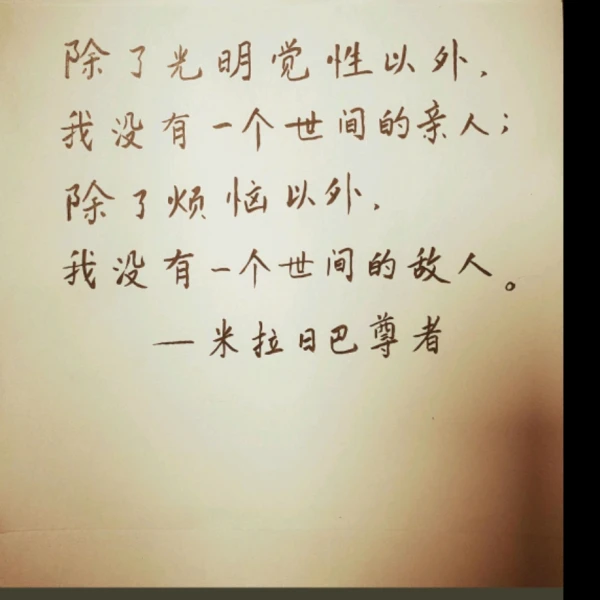 除了光明觉性以外，
我没有一个世间的亲人；
除了烦恼以外，
我没有一个世间的敌人。
—米拉日巴尊者